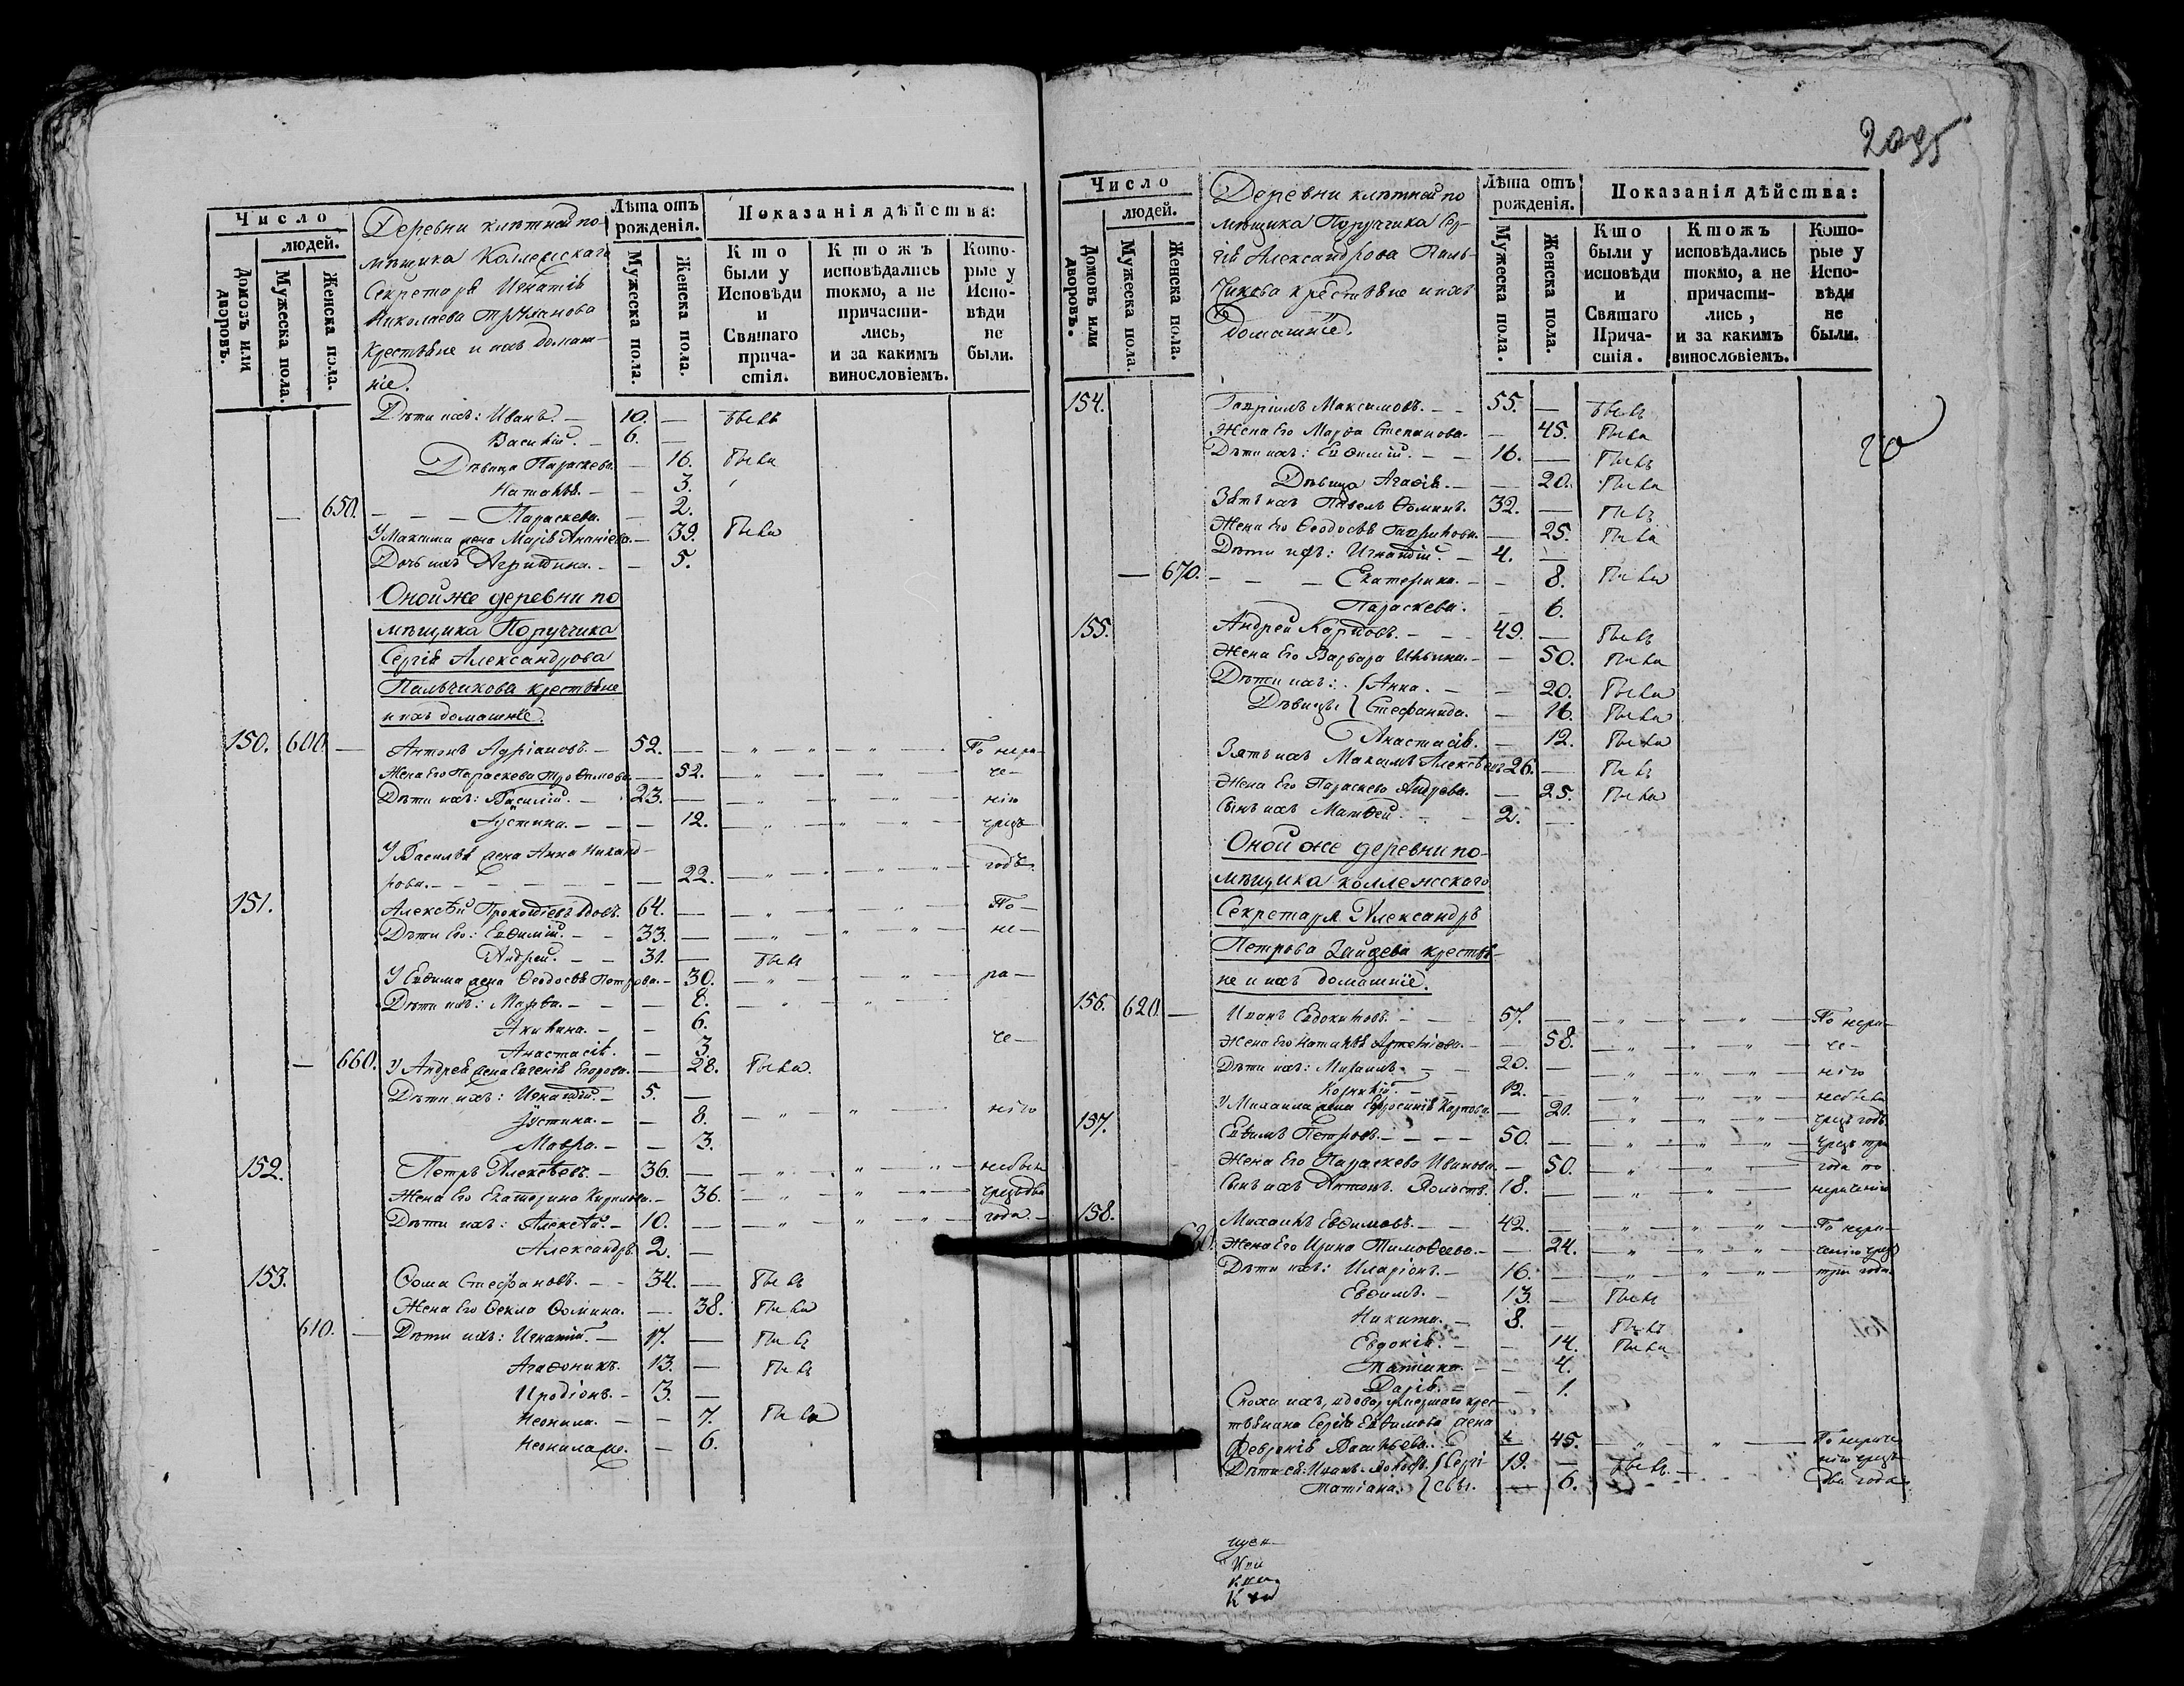 Число
людей.
Домовъ или дворовъ.
Мужеска пола.
Женска пола.
Деревни клѣтной по-
мѣщика Коллежскаго
Секретаря Игнатія
Николаева
крестьяне и ихъ домаш-
ніе.
Лѣта отъ рожденія.
Мужеска пола.
Женска пола.
Показанія дѣйства:
Кто были у Исповѣди и Святаго причастія.
Ктожъ исповѣдались токмо, а не причастились, и за какимъ винословіемъ.
Которые у Исповѣди не были.
Дѣти ихъ: Иванъ. — 10. — былъ
Василій. — 6. —
Дѣвица Параскева. — 16. была
Наталія. — — 3.
— 650. — — — Параскева. — 2.
У Максима жена Марія Ананіева. — 39. была
Дочь ихъ — 5.
Оной же деревни по
мѣщика Поручика
Сергія Александрова
Пальчикова крестьяне
и ихъ домашніе.
150. 600. — Антонъ Адріановъ. — 52. — — „ — „ — „ — По нера-
Жена Его Параскева Трофимова. — 52. — „ — „ — „ — че-
Дѣти ихъ: Василій. — 23. — — „ — „ — „ — нію
Іустина. — — — 12. — „ — „ — „ — чрезъ
У Василія жена Анна Никанд-
рова. — — — — — 22. — „ — „ — „ — годъ.
151. Алексѣй Прокофіевъ вдовъ. 64. — — „ — „ — „ — По —
Дѣти Его: Евфимій. — — 33. — — „ — „ — „ — не —
Андрей. — — 31. — былъ
У Евфима жена Феодосія Петрова. — 30. — „ — „ — „ — ра —
Дѣти ихъ: Марфа. — — — 8. — „ — „ — „
Акилина. — — 6.
Анастасія. — 3. че —
— 660. У Андрея жена Евгенія Егорова. — 28. была.
Дѣти ихъ: Игнатій. — 5. —
Іустина. — — 8. — „ — „ — нію
Мавра. — — 3.
152. Петръ Алексѣевъ. — 36. — — „ — „ — „ — небыли
Жена Его Екатерина Кирилова. — 36. — „ — „ — „ — чрезъ два
Дѣти ихъ: Алексѣй. — 10. — — „ — „ — „ — года. —
Александръ. 2. —
153. Фома Стефановъ. — — 34. — былъ
Жена Его Фекла Фомина. — 38. была
610. — Дѣти ихъ: Игнатій. — 17. — былъ
Агафоникъ. 13. — былъ
Иродіонъ. — 3. —
Неонила. — — 7. была
Неонила же. — 6.
2095
Число
людей.
Домовъ или дворовъ.
Мужеска пола.
Женска пола.
Деревни клѣтной по
мѣщика Поручика Сер-
гія Александрова Паль-
чикова крестьяне и ихъ
домашніе.
Лѣта отъ рожденія.
Мужеска пола.
Женска пола.
Показанія дѣйства:
Кто были у исповѣди и Святаго Причастія.
Ктожъ исповѣдались токмо, а не причастились, и за какимъ винословіемъ.
Которые у Исповѣди не были.
154. Гавріилъ Максимовъ. — — 55. — былъ
Жена Его Марфа Степанова. — — 45. была
Дѣти ихъ: Евфимій. — — 16. — былъ
Дѣвица Агафія. — — 20. была
Зять ихъ Павелъ Фоминъ. 32. — былъ
Жена Его Феодосія Гаврилова. — 25. была
Дѣти ихъ: Игнатій. — 4. —
— 670. — — — Екатерина. — — 8. была
Параскева. — 6.
155. Андрей Карповъ. — — — 49. — былъ
Жена Его Варвара Ильина. — — 50. была
Дѣти ихъ: { Анна. — — 20. была
Дѣвицы { Стефанида. — 16. была
Анастасія. — 12. была
Зять ихъ Максимъ Алексѣевъ 26. — былъ
Жена Его Параскева Андреева. — 25. была
Сынъ ихъ Матфей. — — 2. —
Оной же деревни по-
мѣщика коллежскаго
Секретаря Александра
Петрова Зайцева крестья-
не и ихъ домашніе.
156. 620. — Иванъ Евдокимовъ. — — 57. — — „ — „ — „ — По нера-
Жена Его Наталія Артеміева. — — 58. — „ — „ — „ — че —
Дѣти ихъ: Михаилъ. — — 20. — — „ — „ — „ — нію
Корнилій. — — 12. — — „ — „ — „ — небыли
У Михаила жена Евфросинія Карпова. — 20. — „ — „ — „ — чрезъ годъ.
157. Евфимъ Петровъ. — — — — 50. — — „ — „ — „ — Чрезъ три
Жена Его Параскева Иванова. — 50. — „ — „ — года по
Сынъ ихъ Антонъ. Холостъ. 18. — — „ — „ — нераченію
158. Михаилъ Евфимовъ. — — 42. — — „ — „ — „ — По нера-
Жена Его Ирина Тимофеева. — — 24. — „ — „ — „ — ченію чрезъ
Дѣти ихъ: Иларіонъ. — 16. — — „ — „ — „ — три года.
Евфимъ. — 13. — былъ
Никита. — 8. — былъ
Евдокія. — — 14. была
Татіана. — — 4.
Дарія. — — 1.
Сноха ихъ, вдова умершаго крес-
тьянина Сергія Евфимова жена
Февронія Васильева. — — 45. — „ — „ — По нераче
Дѣти ея: Иванъ холостъ. { Серг- 19. — былъ. — нію чрезъ
Татіана. { евы. — 6. — два года.